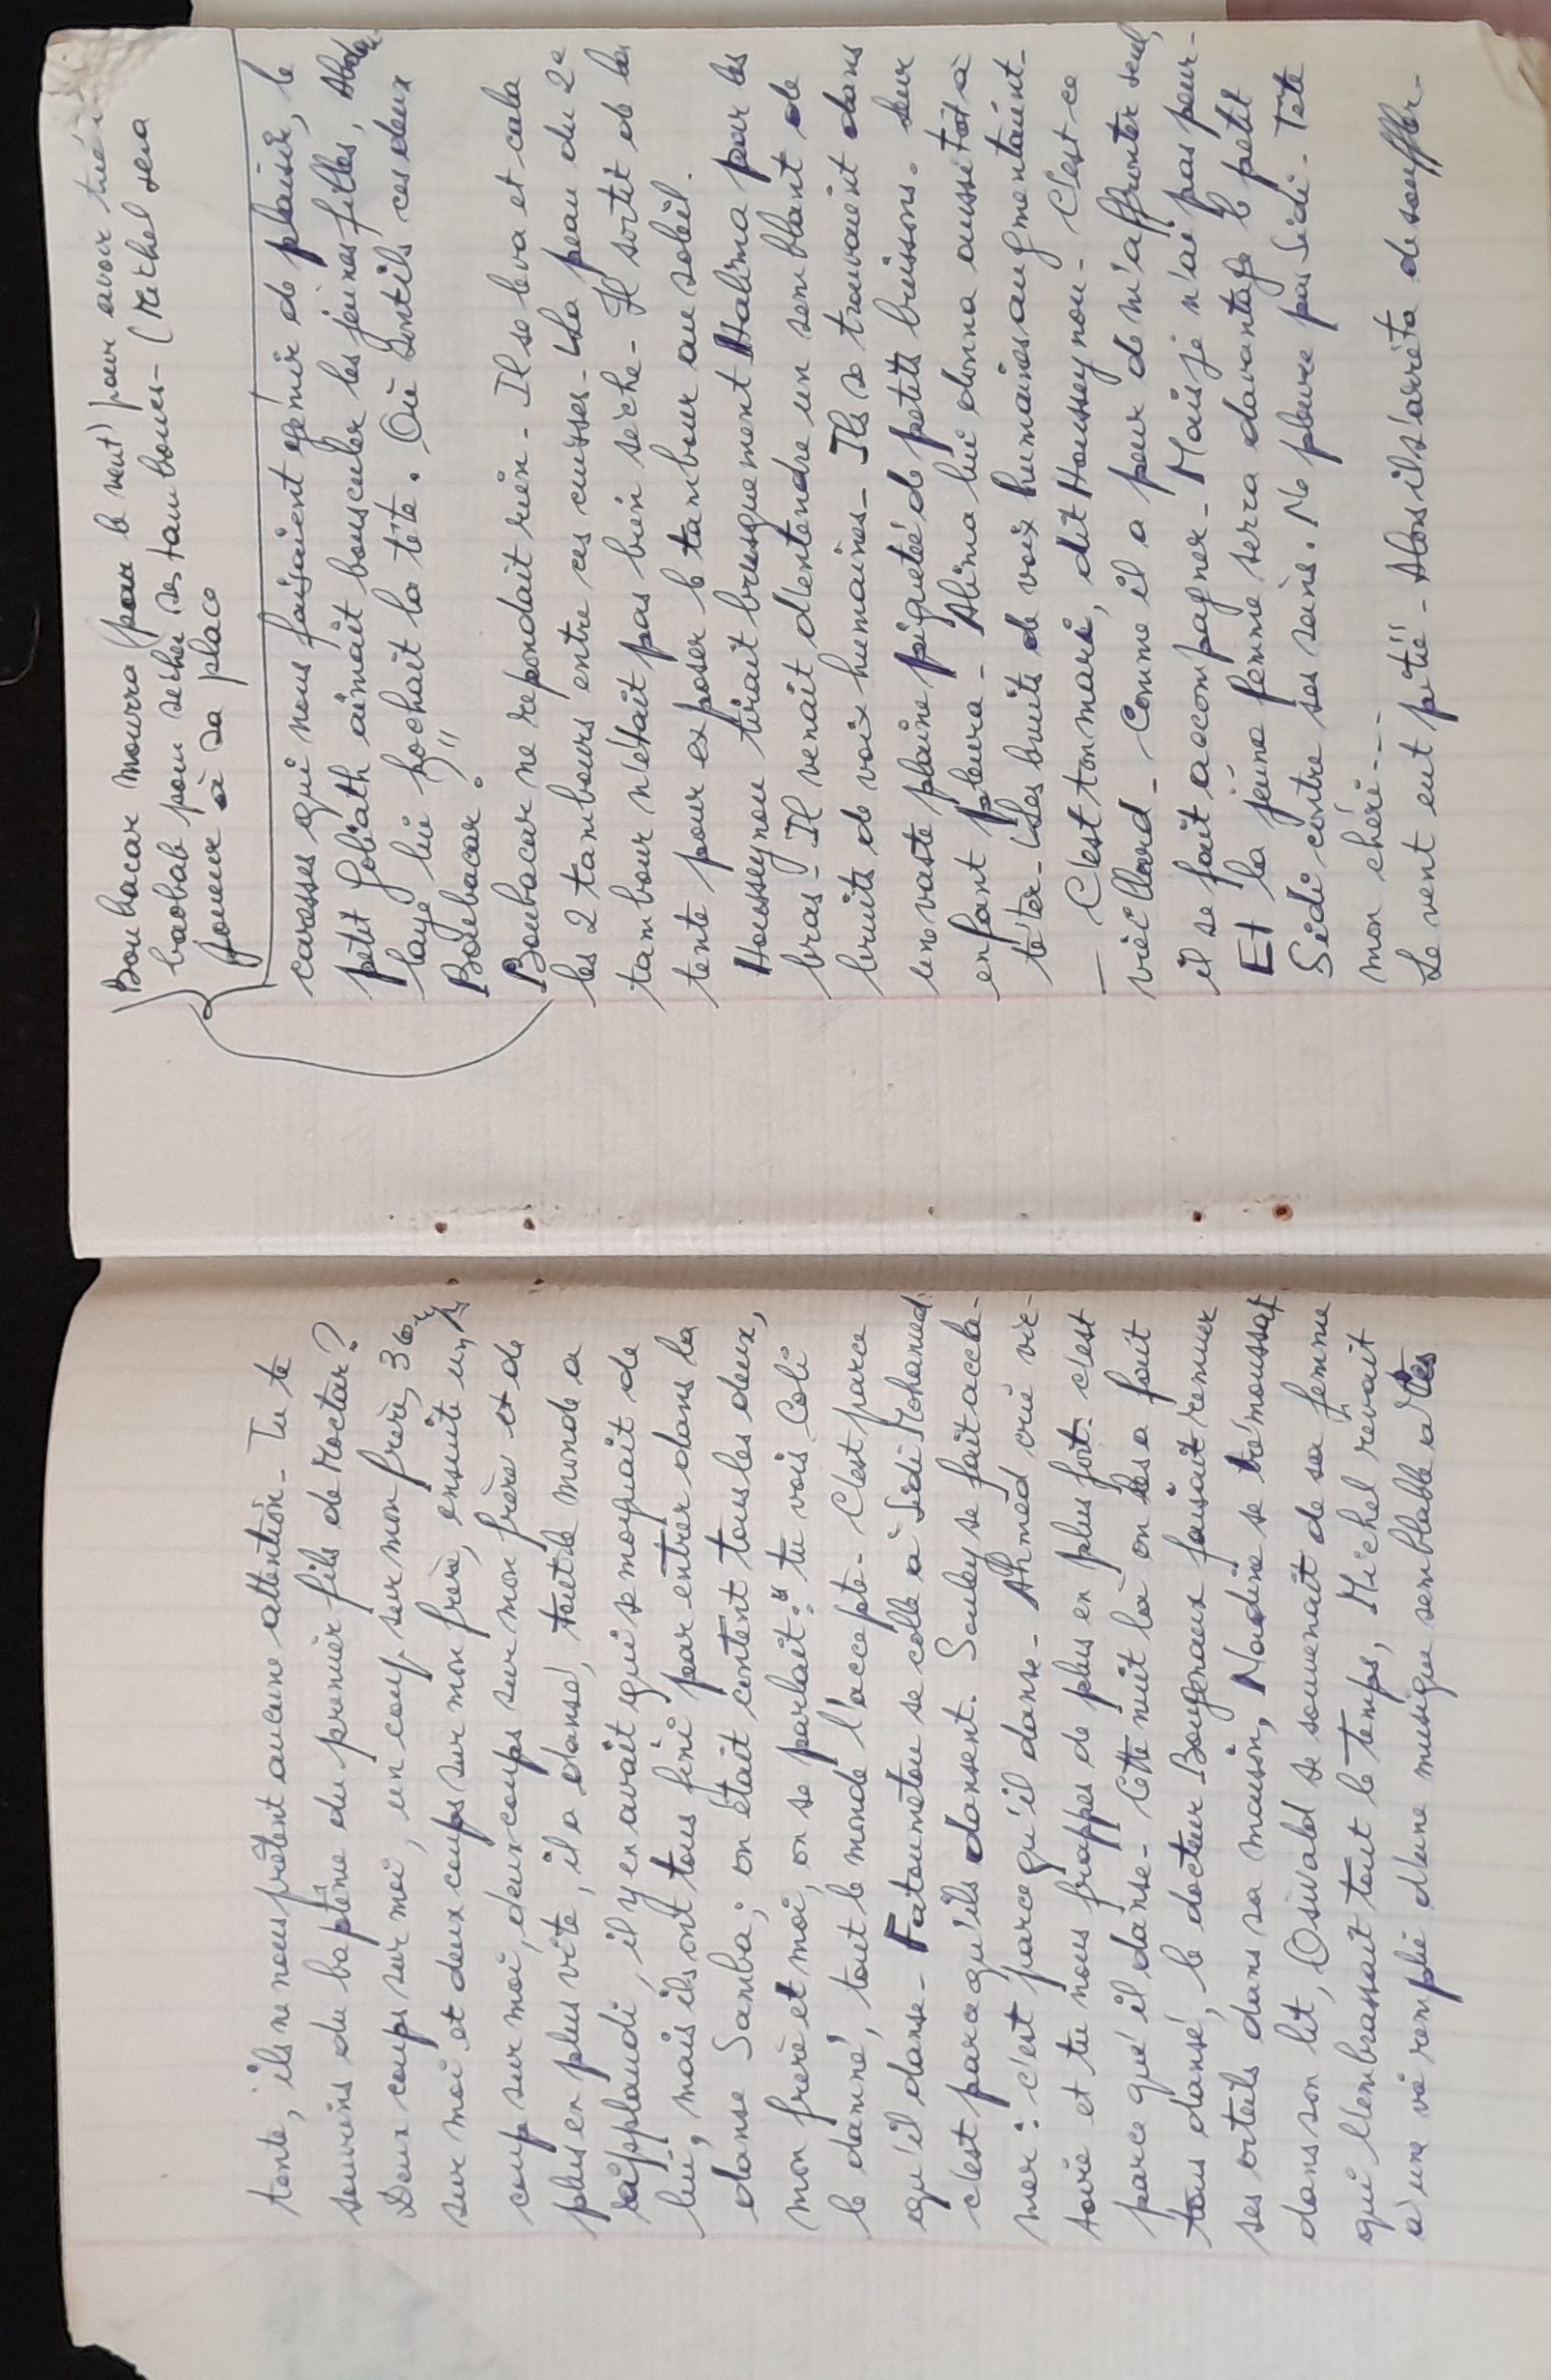 tente, ils ne nous prêtent aucune attention - Tu te
souviens du baptême du premier fils de Moctar ?
Deux coups sur moi, un coup sur mon frère, 36
sur moi et deux coups sur mon frère, ensuite un
coup sur moi, deux coups sur mon frère et de
plus en plus vite, il a dansé, tout le monde a
applaudi, il y en avait qui se moquait de
lui, mais ils ont tous fini par entrer dans la
danse Samba ; on était content tous les deux,
mon frère et moi, on se parlait : "tu vois Coli
le damné, tout le monde l'accepte - C'est parce
qu'il danse - Fatoumétou se colle à Sidi Mohamed
c'est parce qu'ils dansent. Souley se fait accla-
mer : c'est parce qu'il danse - Ahmed crie vic-
toire et tu nous frappes de plus en plus fort c'est
parce qu'il danse - Cette nuit là on les a fait
tous dansé, le docteur Bougeaux faisait remuer
ses orteils dans sa maison, Nadine se trémoussait
dans son lit, Osivald se souvenait de sa femme
qui l'embrassait tout le temps, Michel rêvait
à une vie remplie d'une musique semblable à tes
Boubacar mourra (par le vent) pour avoir tué
baobab pour sécher ses tambours - (Michel sera
joueur à sa place
caresses qui nous faisaient gémir de plaisir, le
petit Goliath aimait bousculer les jeunes filles, Abdou-
laye lui hochait la tête. Où sont ils ces deux
Boubacar ? "
Boubacar ne repondait rien - Il se leva et cala
les 2 tambours entre ces cuisses - La peau du 2e
tambour n'était pas bien sèche - Il sortit de la
tente pour exposer le tambour au soleil.
Housseynou tirait brusquement Halima par les
bras - Il venait d'entendre un semblant de
bruits de voix humaines - Ils se trouvaient dans
une vaste plaine paiquetée de petits buissons. Leur
enfant pleura - Alima lui donna aussitôt à
téter - Les bruits de voix humaines augmentaient -
- C'est ton mari, dit Housseynou - C'est ce
vieillard - Comme il a peur de m'affronter seul,
il se fait accompagner - Mais je n'ai pas peur -
Et la jeune femme serra davantage le petit
Sidi contre ses seins. Ne pleure pas Sidi - Tete
mon chéri - -
Le vent eut pitié - Alors il s'arrêta de souffler -